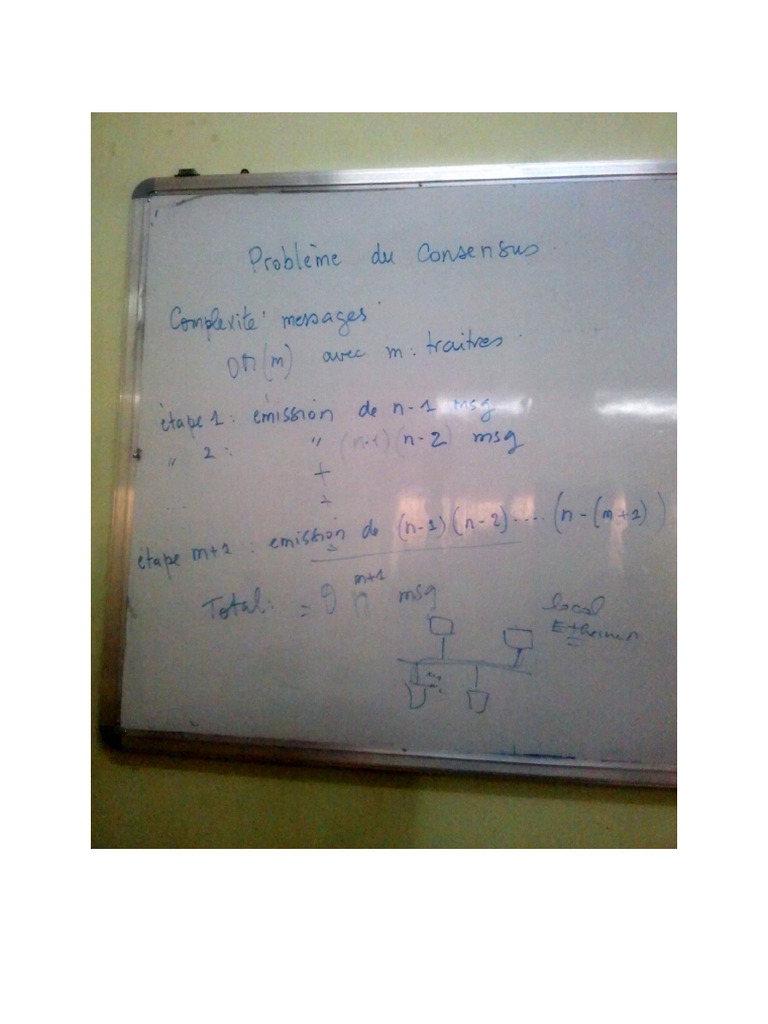 Problème du Consensus
Complexité messages
OM(m) avec m : traitres
étape 1 : émission de n-1 msg
" 2 : " (n-1)(n-2) msg
+
étape m+1 : emission de (n-1)(n-2) .... (n-(m+1))
Total : = O n^{m+1} msg
local